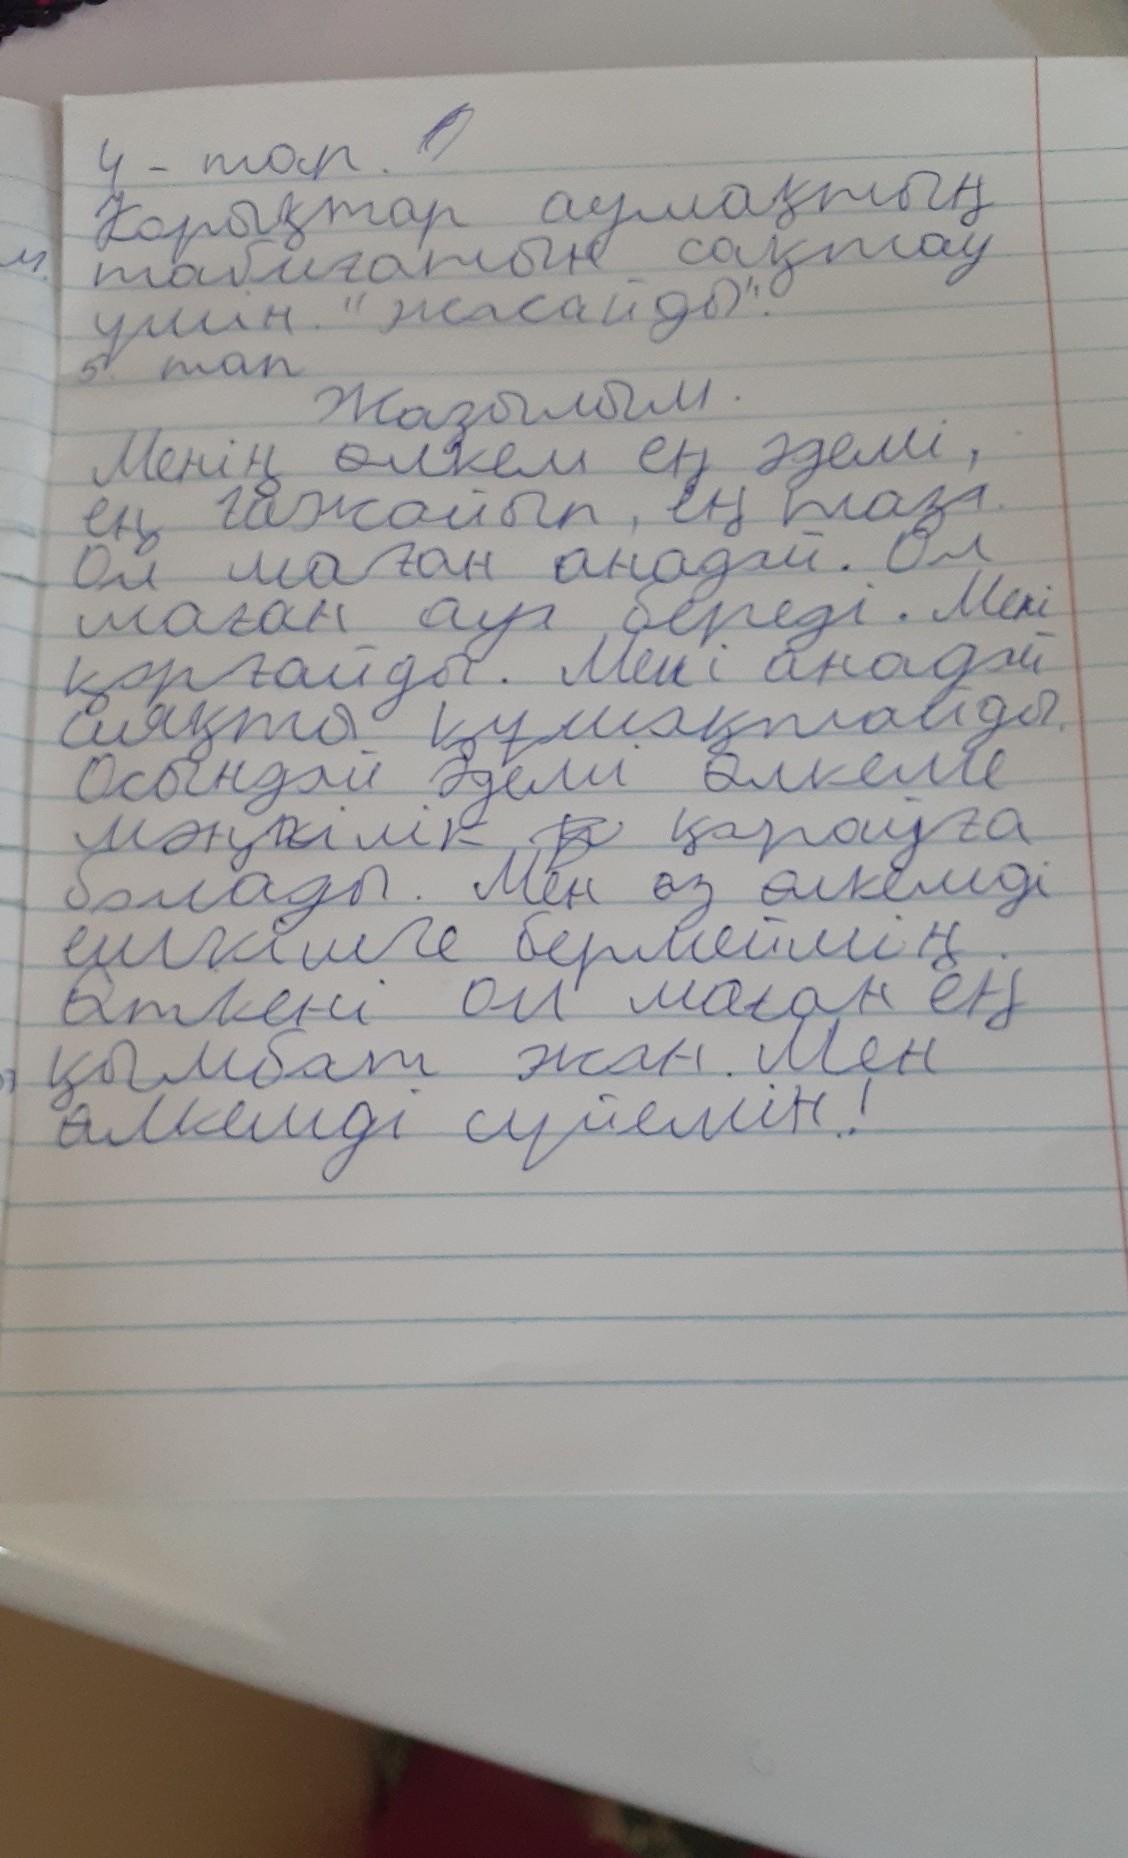 4 - тап.
Қорықтар аумақтың
табиғатын сақтау
үшін. "жасайды".
5. тап
Жазылым.
Менің өлкем ең әдемі,
ең ғажайып, ең таза.
Ол маған анадай. Ол
маған ауа береді. Мені
қорғайды. Мені анадай
сияқты құшақтайды.
Осындай әдемі өлкеме
мәңгілік қарауға
болады. Мен өз өлкемді
ешкімге бермеймін.
Өткені ол маған ең
қымбат жан. Мен
өлкемді сүйемін!